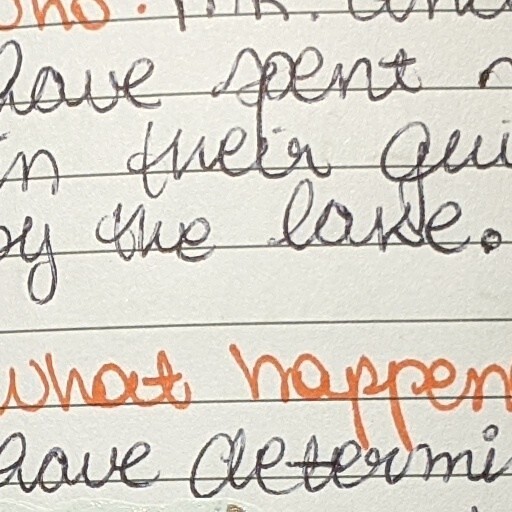 have spent
in their qui
by the lake.
what happen
have determi